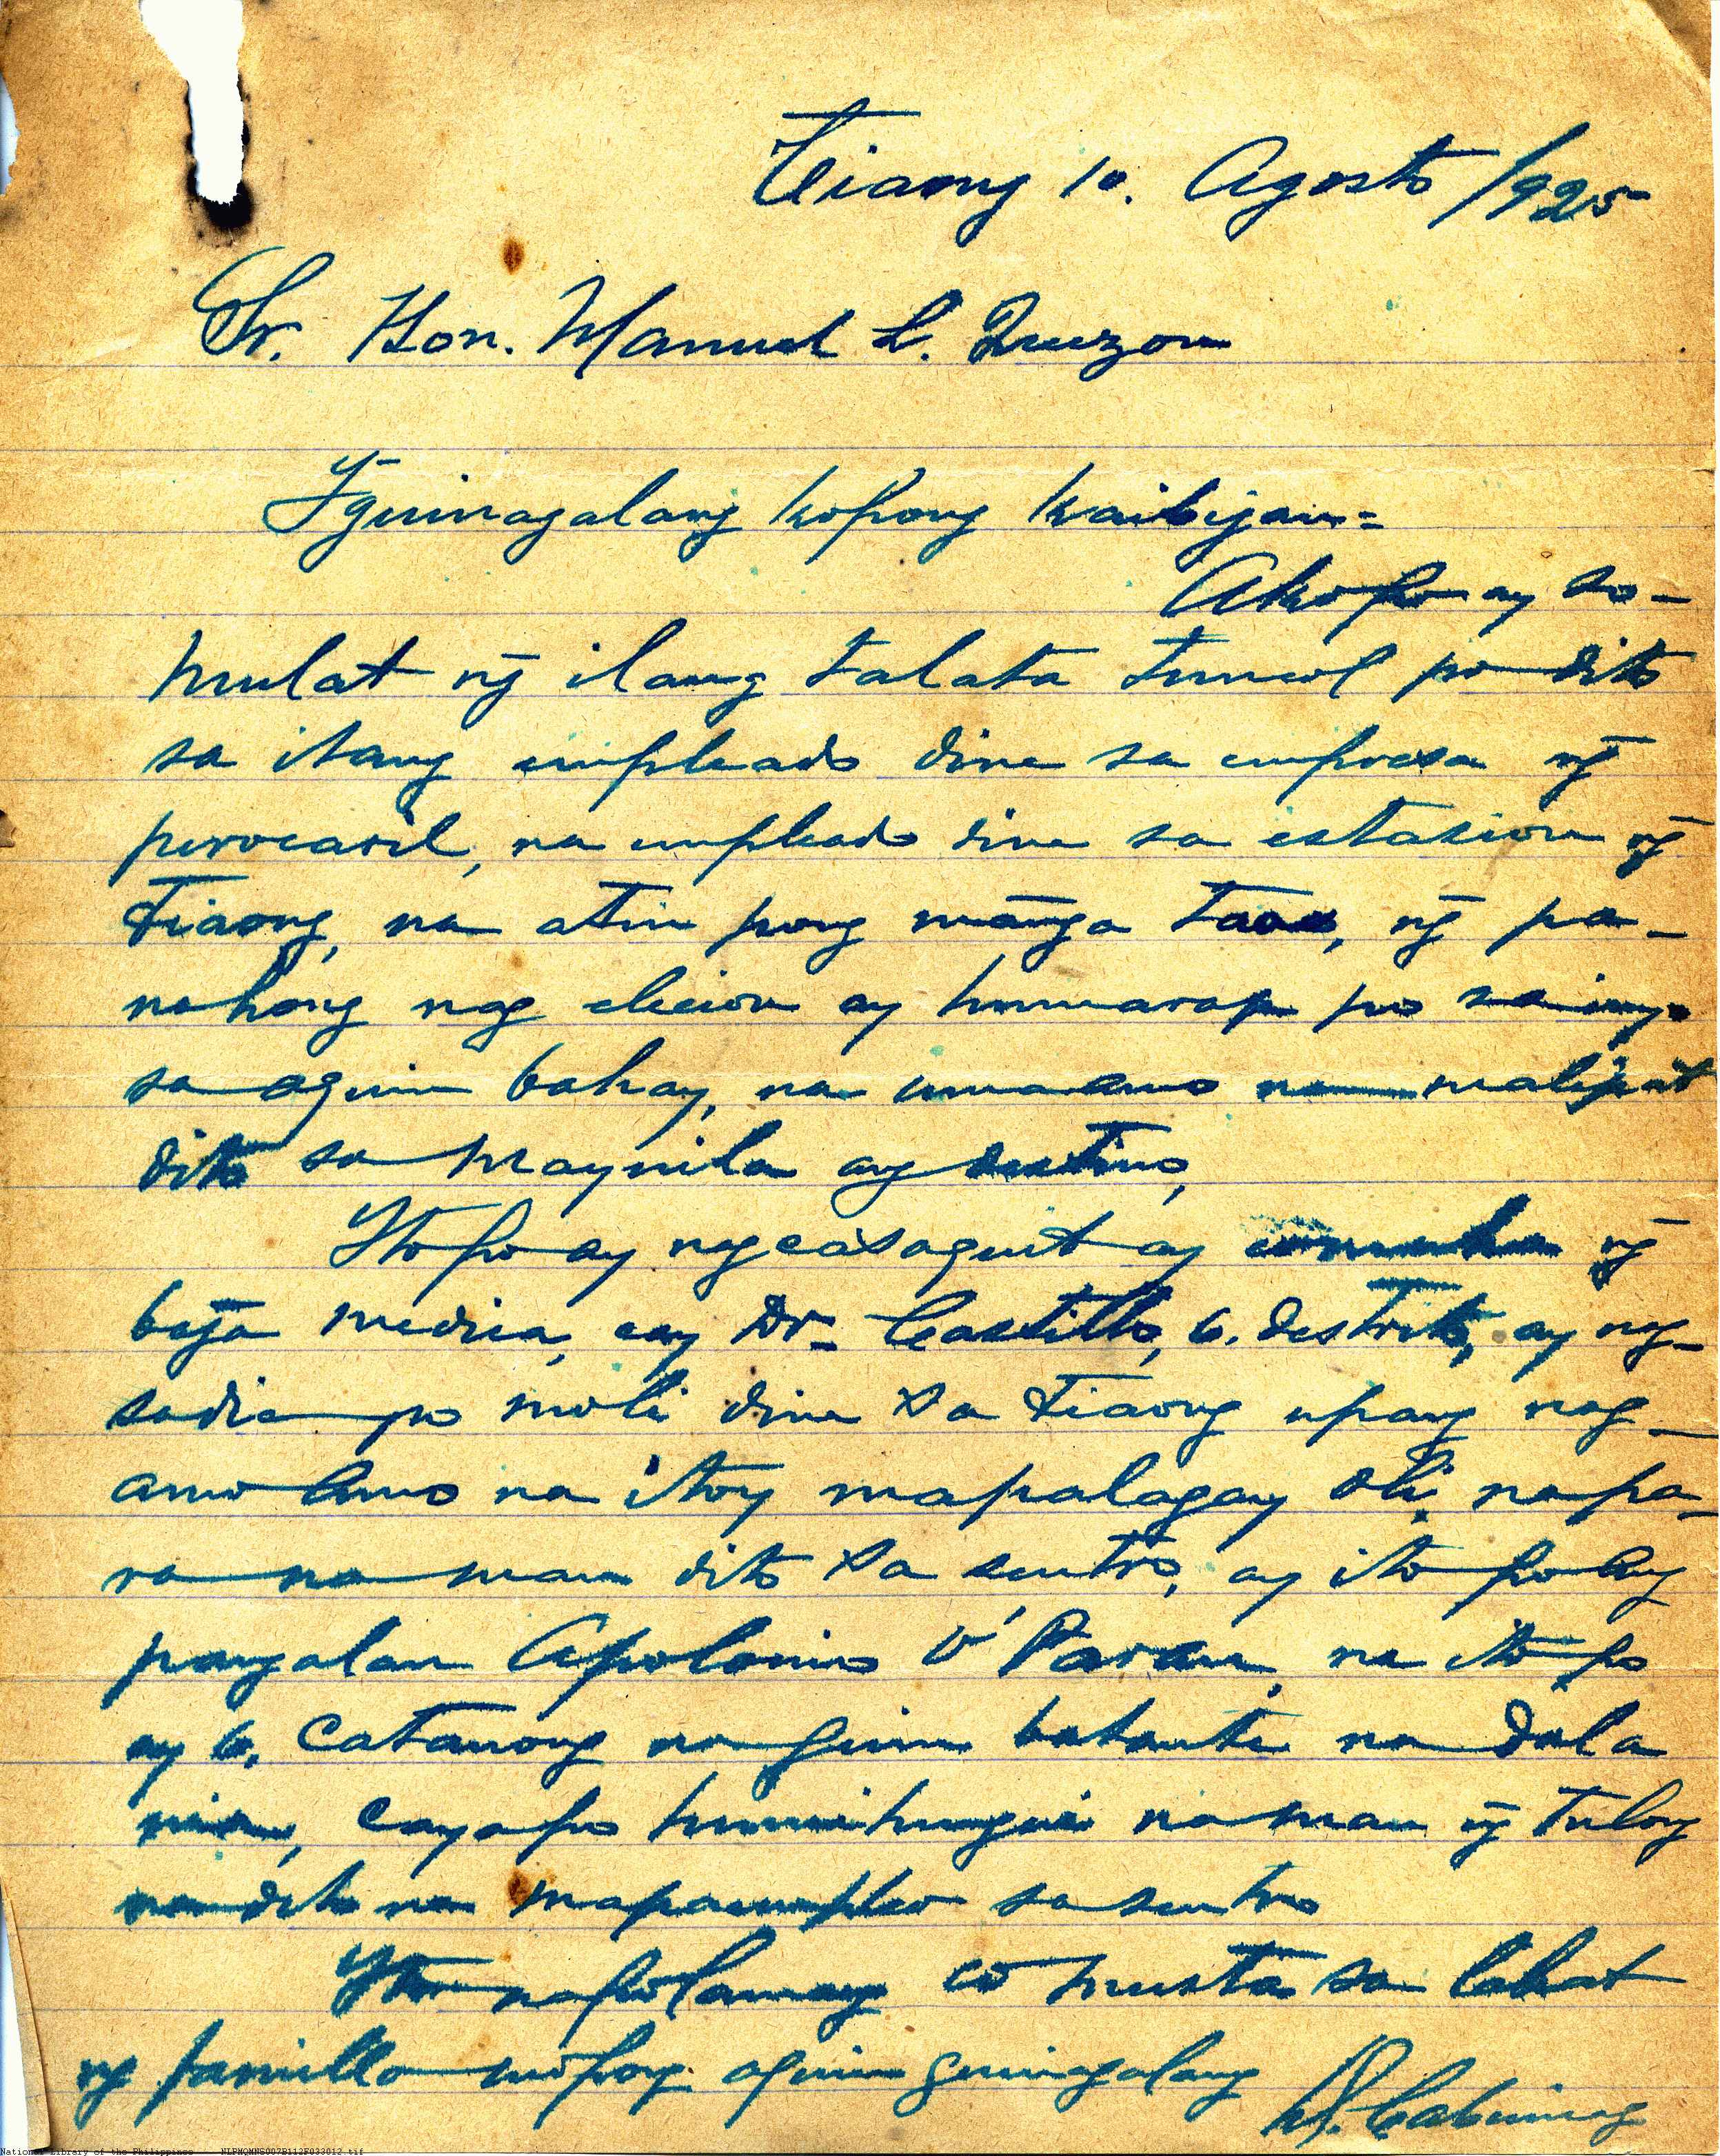 Tiaong 10. Agosto /925
Sr. Hon. Manuel L. Quezon
Yguinagalang kopong kaibigan=
Akopo ay so-
mulat ng̃ ilang talata tuncol po dito
sa isang empleado dine sa empresa ng̃
perocaril, na empleado dine sa estasion ng̃
Tiaong, na atin pong mang̃a taoo, ng̃ pa-
nahong nag elecion ay humarap po sa inyo
sa aquin bahay, na umaamo na malipat
dito sa Maynila ang destino,
Ito po ay ngcasaguit ay ng̃
baja medica, cay Dr. Castillo, 6. destrito, ay ng-
sadia po moli dine sa Tiaong upang nag-
amo amo na itoy mapalagay oli, napa-
ra naman dito sa sentro, ay ito po ay
pangalan Apolonio D' Paran, na ito po
ay 6. catauong naguin batante na dala
nia, cayapo humihingui naman ng̃ tulong
na dito na mapaempleo sa sentro
Ito na polamang co musta sa lahat
ng familla mopong aquin guinagalang
Cabunag
National Library of the Philippines NLPMQMNS007B112F033012.tif